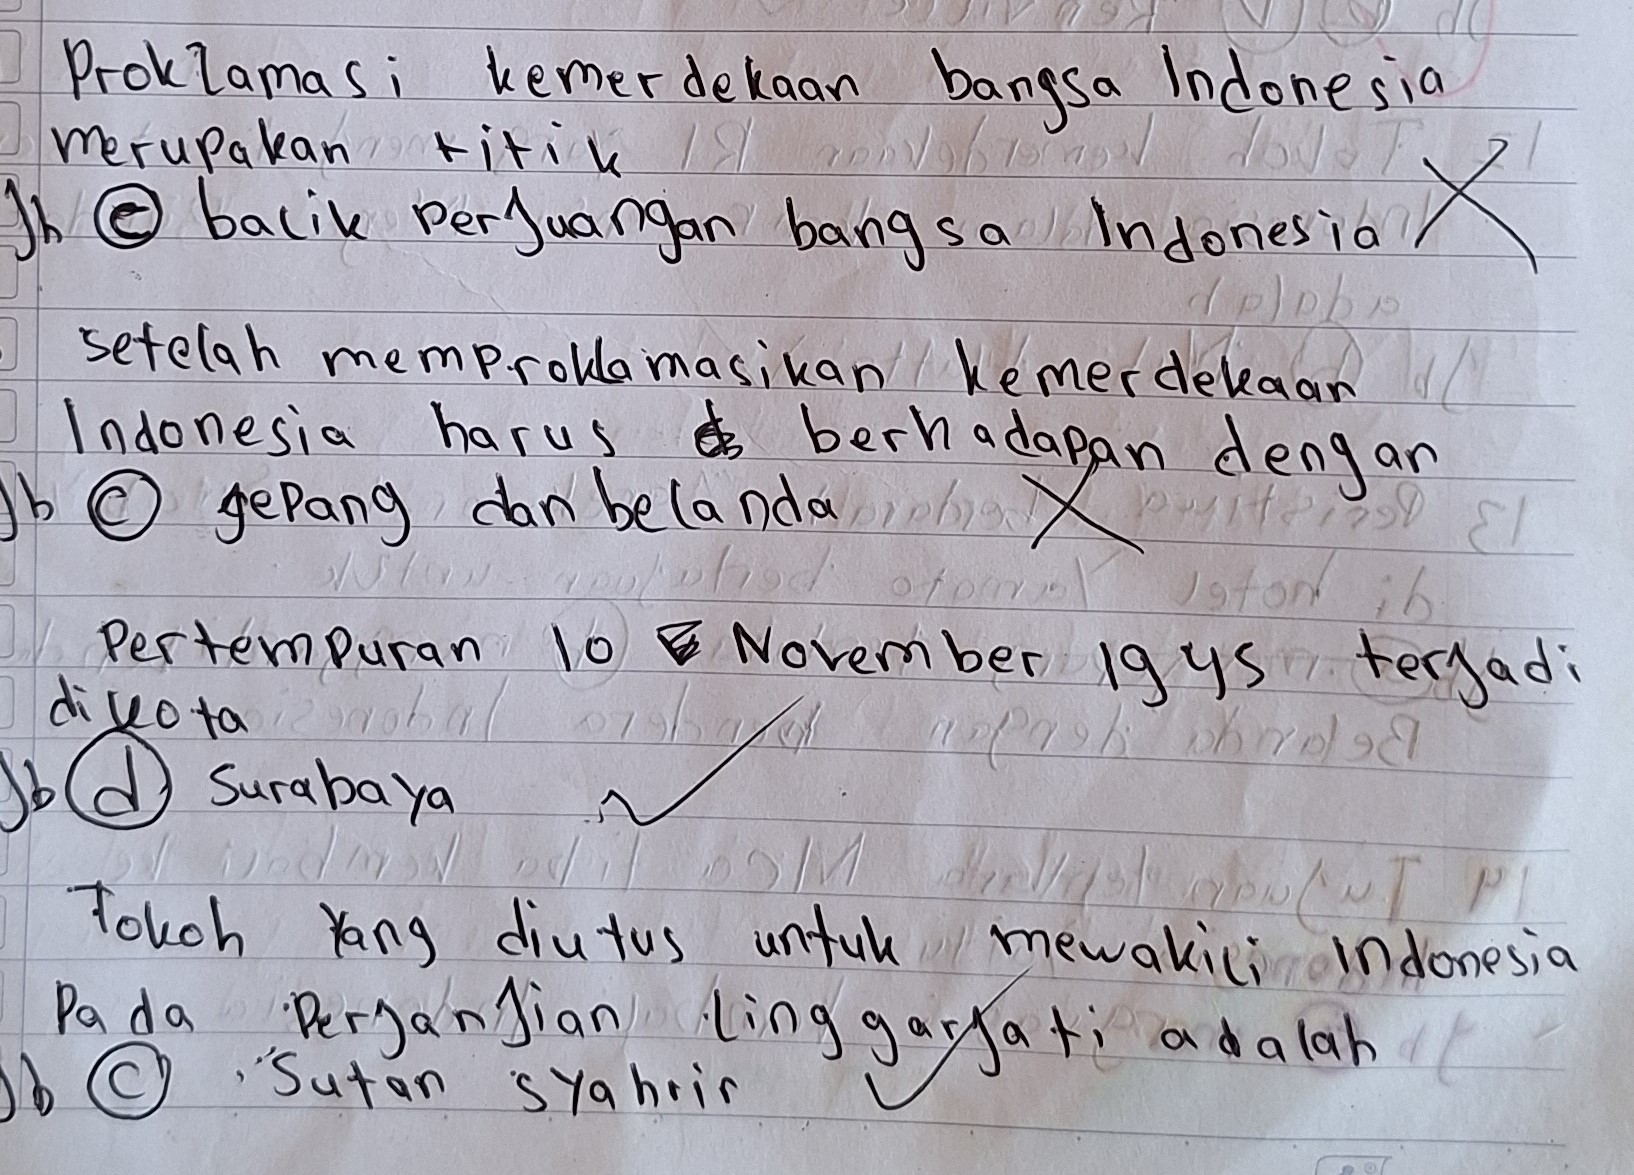 Proklamasi kemerdekaan bangsa Indonesia
merupakan titik
Jb c balik perjuangan bangsa Indonesia
setelah memproklamasikan kemerdekaan
Indonesia harus berhadapan dengan
Jb c jepang dan belanda
Pertempuran 10 November 1945 terjadi
dikota
Jb d Surabaya
Tokoh yang diutus untuk mewakili Indonesia
Pada Perjanjian linggarjati adalah
Jb c Sutan syahrir